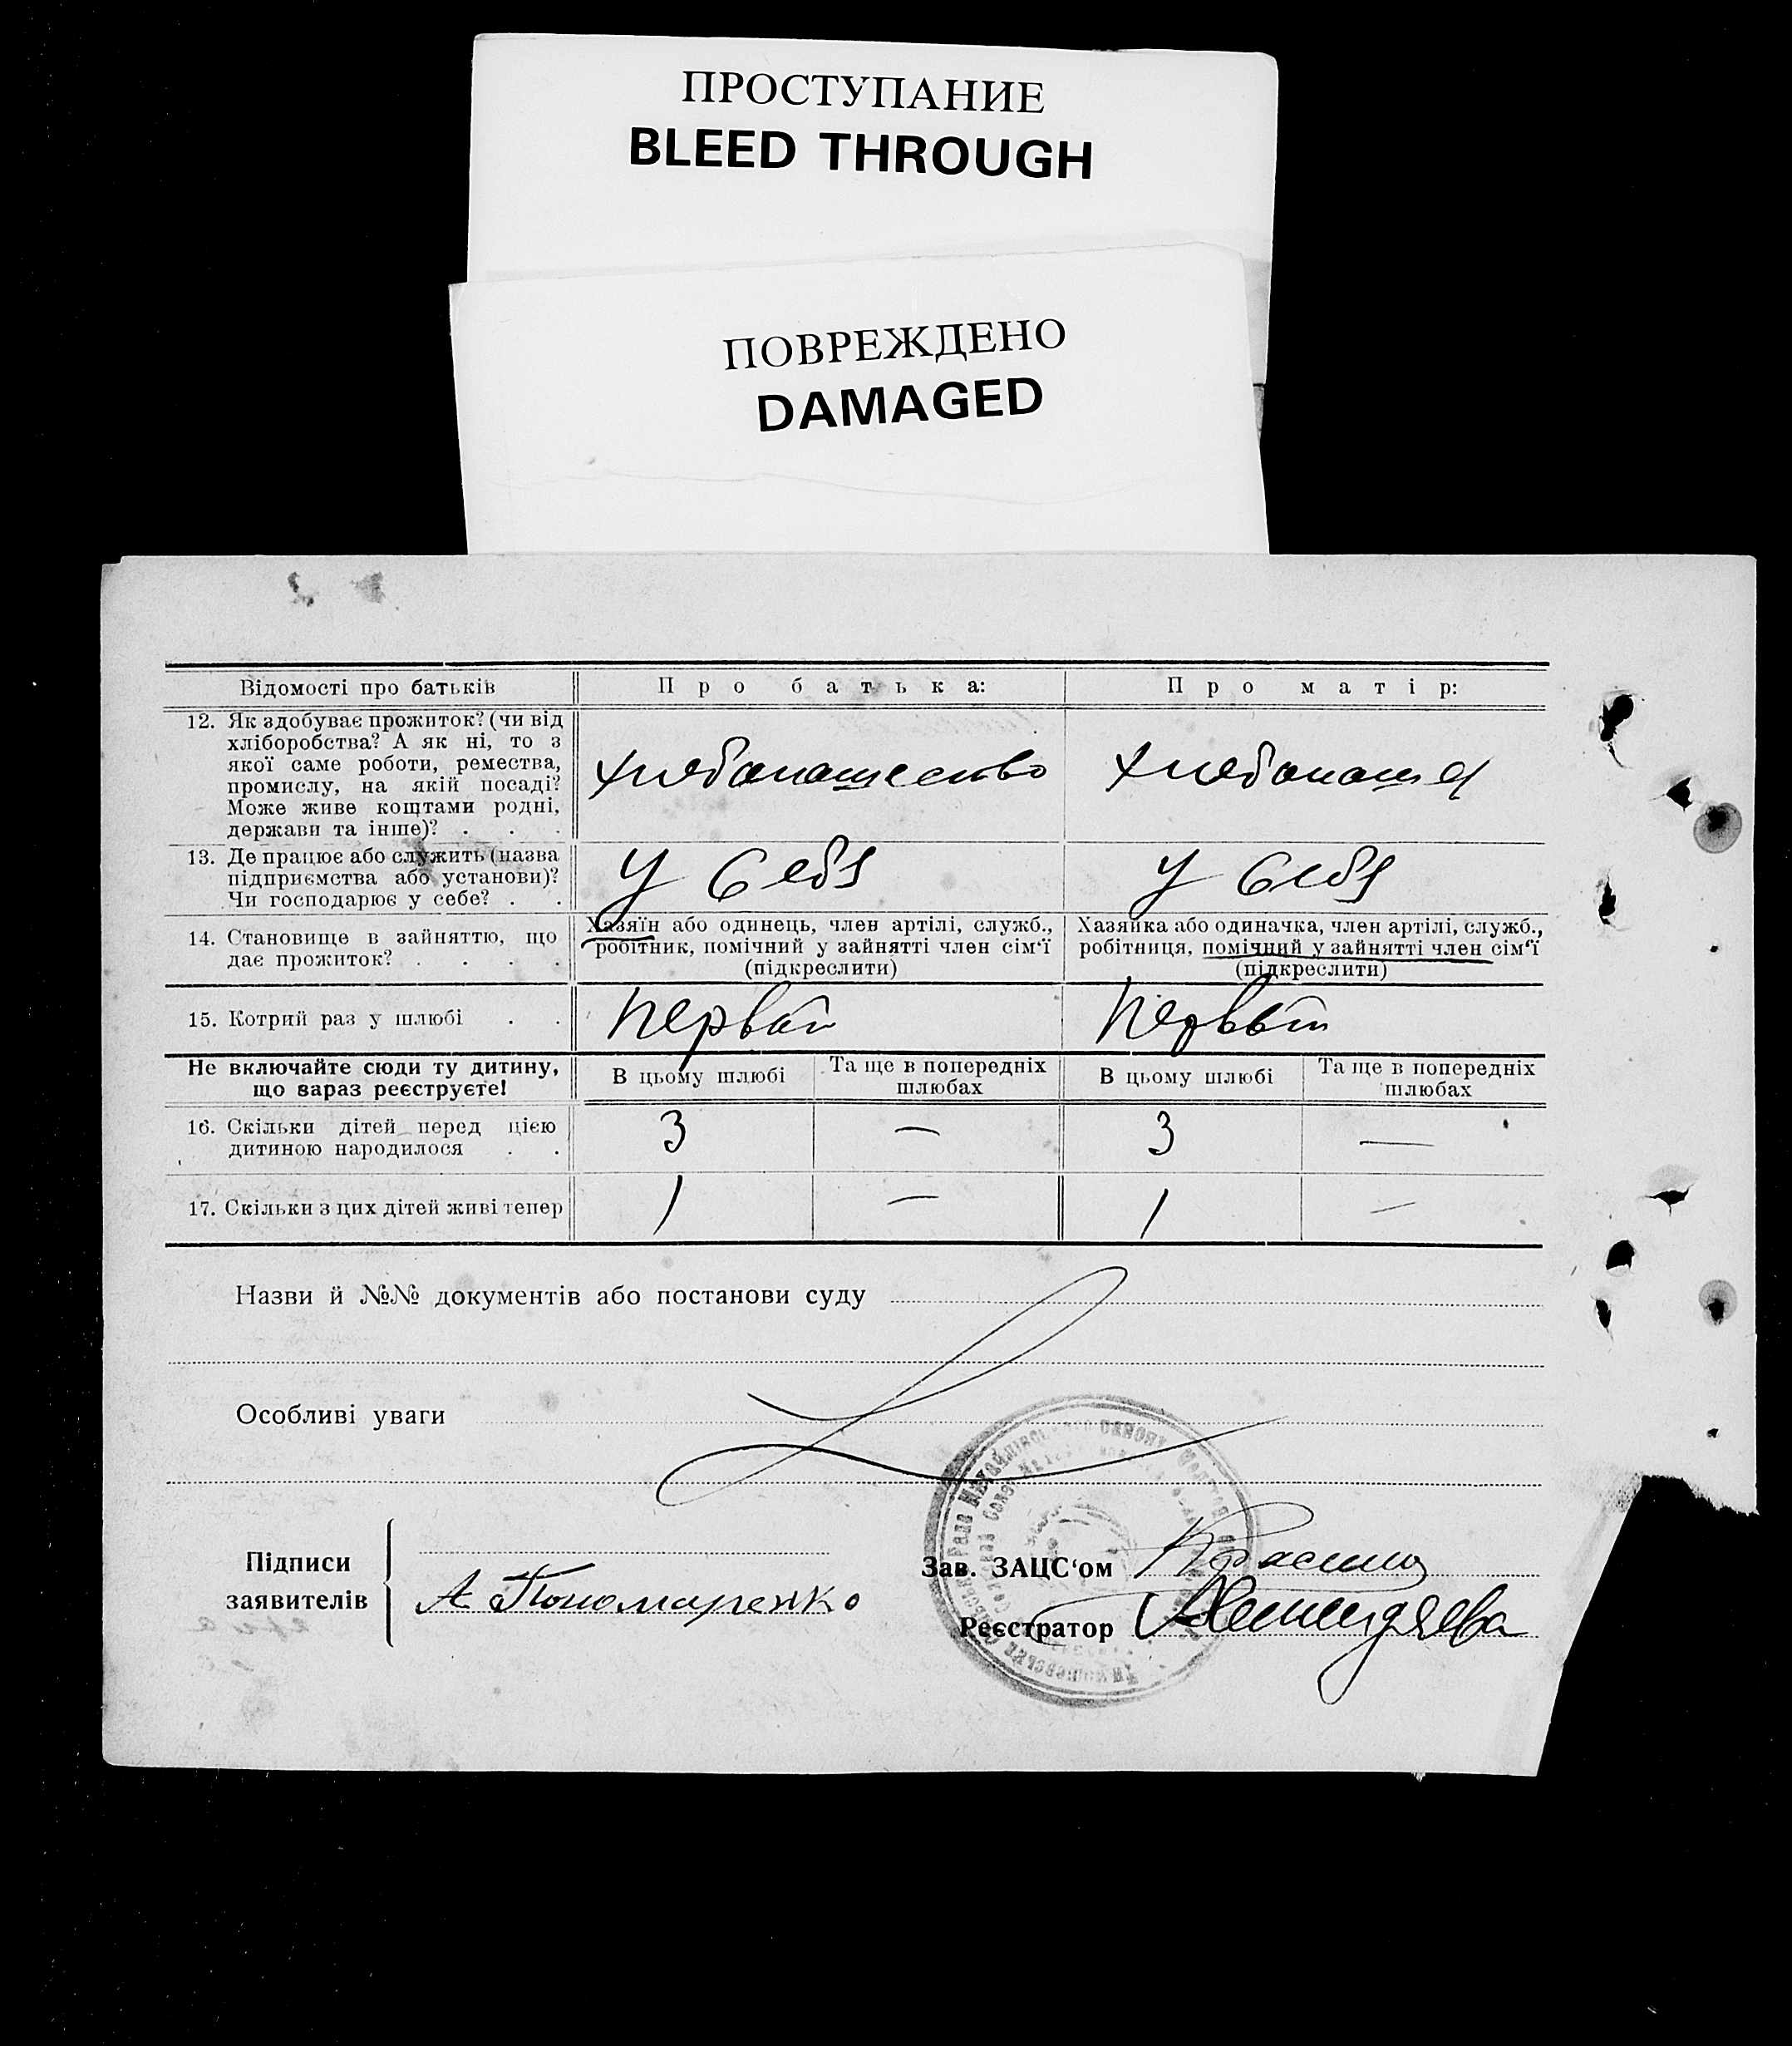 ПРОСТУПАНИЕ
BLEED THROUGH
ПОВРЕЖДЕНО
DAMAGED
Відомості про батьків
Про батька:
Про матір:
12. Як здобуває прожиток? (чи від
хліборобства? А як ні, то з
якої саме роботи, ремества,
промислу, на якій посаді?
Може живе коштами родні,
держави та інше)? . . .
хлебопашество
хлебопаше
13. Де працює або служить (назва
підприємства або установи)?
Чи господарює у себе? . .
У Себя
У Себя
14. Становище в зайняттю, що
дає прожиток? . . . .
Хазяїн або одинець, член артілі, служб.,
робітник, помічний у зайнятті член сім‘ї
(підкреслити)
Хазяйка або одиначка, член артілі, служб.,
робітниця, помічний у зайнятті член сім‘ї
(підкреслити)
15. Котрий раз у шлюбі . .
Первый
Первый
Не включайте сюди ту дитину,
що зараз реєструєте!
В цьому шлюбі
Та ще в попередніх
шлюбах
В цьому шлюбі
Та ще в попередніх
шлюбах
16. Скільки дітей перед цією
дитиною народилося . .
3 — 3 —
17. Скільки з цих дітей живі тепер
1 — 1 —
Назви й №№ документів або постанови суду
Особливі уваги
Підписи
заявителів
А Пономаренко
Зав. ЗАЦС‘ом
Реєстратор